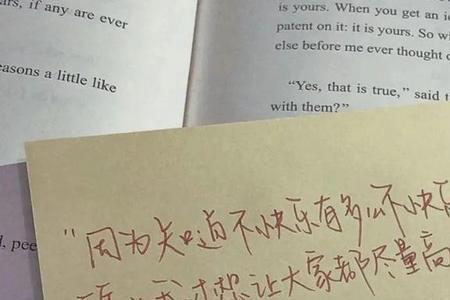 ars, if any are ever
easons a little like
is yours. When you get an
patent on it: it is yours. So
else before me ever thought
“Yes, that is true,” said
with them?”
“因为知道不快乐有多么不快
我才想让大家都尽量高